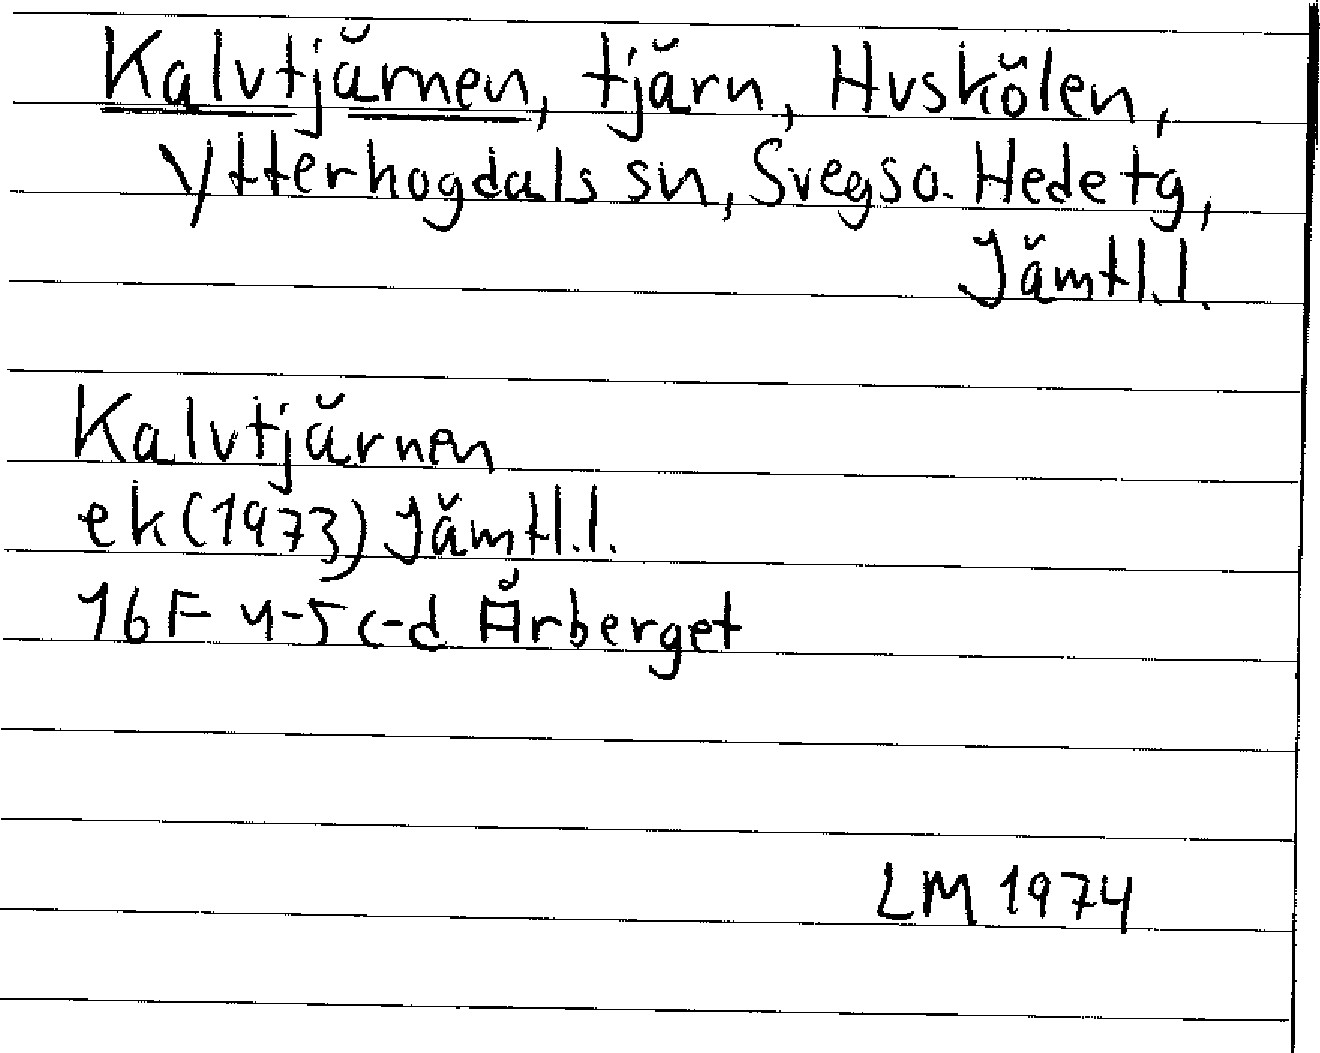 Kalvtjärnen, tjärn, Huskölen,
Ytterhogdals sn, Svegs o. Hede tg,
Jämtl.l.
Kalvtjärnen
ek (1973) Jämtl.l.
16F 4-5 c-d Årberget
LM 1974